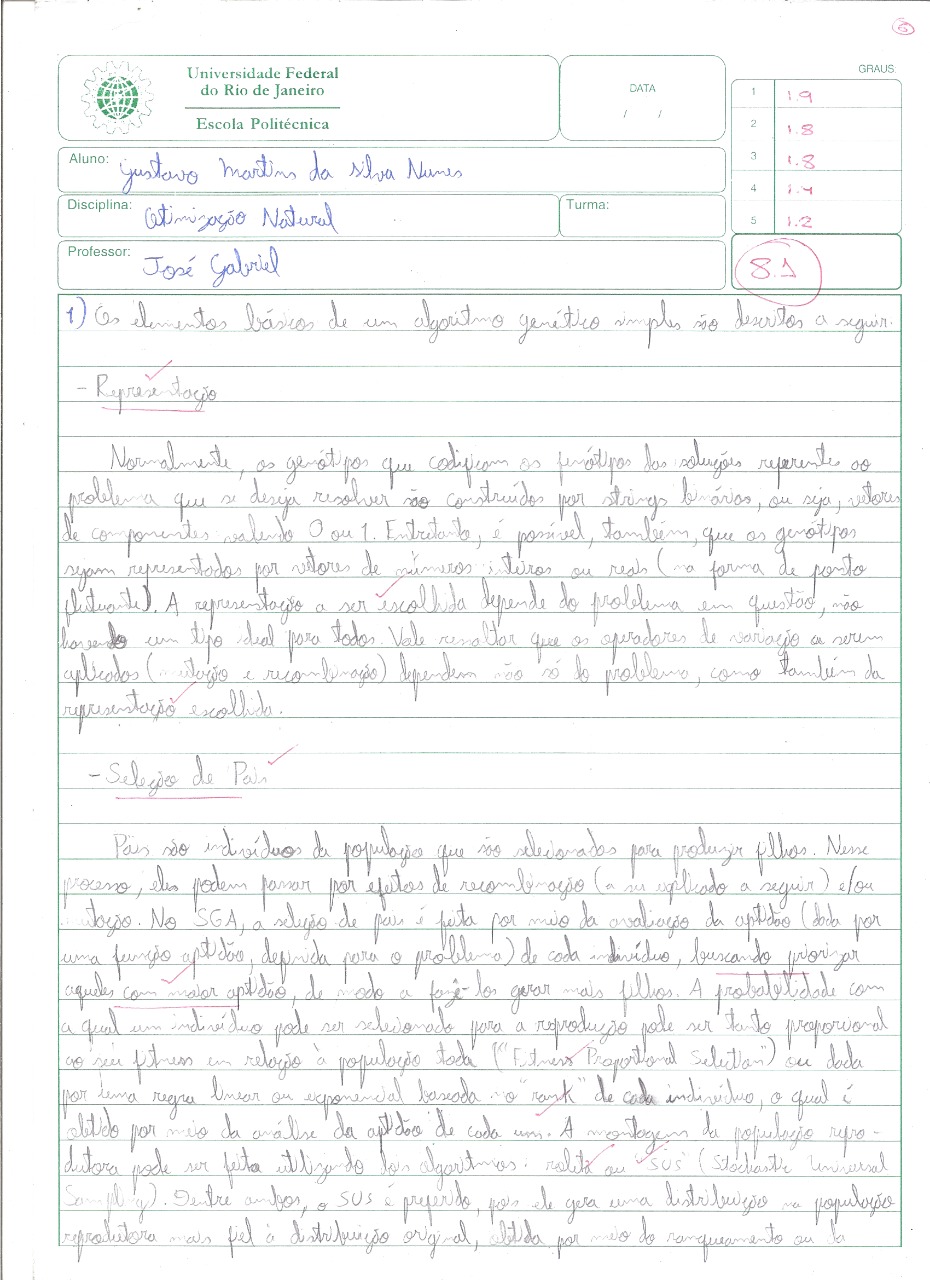 6
Universidade Federal
do Rio de Janeiro
Escola Politécnica
DATA
/ /
GRAUS:
1 1.9
2 1.8
3 1.8
4 1.4
5 1.2
8.1
Aluno: Gustavo Martins da Silva Nunes
Disciplina: Otimização Natural
Turma:
Professor: José Gabriel
1) Os elementos básicos de um algoritmo genético simples são descritos a seguir.
- Representação
Normalmente, os genótipos que codificam os fenótipos das soluções referentes ao
problema que se deseja resolver são construídos por strings binárias, ou seja, vetores
de componentes valendo 0 ou 1. Entretanto, é possível, também, que os genótipos
sejam representados por vetores de números inteiros ou reais (na forma de ponto
flutuante). A representação a ser escolhida depende do problema em questão, não
havendo um tipo ideal para todos. Vale ressaltar que os operadores de variação a serem
aplicados (mutação e recombinação) dependem não só do problema, como também da
representação escolhida.
- Seleção de Pais
Pais são indivíduos da população que são selecionados para produzir filhos. Nesse
processo, eles podem passar por efeitos de recombinação (a ser aplicado a seguir) e/ou
mutação. No SGA, a seleção de pais é feita por meio da avaliação da aptidão (dada por
uma função aptidão, definida para o problema) de cada indivíduo, buscando priorizar
aqueles com maior aptidão, de modo a fazê-los gerar mais filhos. A probabilidade com
a qual um indivíduo pode ser selecionado para a reprodução pode ser tanto proporcional
ao seu fitness em relação à população toda ("Fitness Proportional Selection") ou dada
por uma regra linear ou exponencial baseada no "rank" de cada indivíduo, o qual é
obtido por meio da análise da aptidão de cada um. A montagem da população repro-
dutora pode ser feita utilizando dois algoritmos: roleta ou "SUS" (Stochastic Universal
Sampling). Dentre ambos, o SUS é preferido, pois ele gera uma distribuição na população
reprodutora mais fiel à distribuição original, obtida por meio do ranqueamento ou da